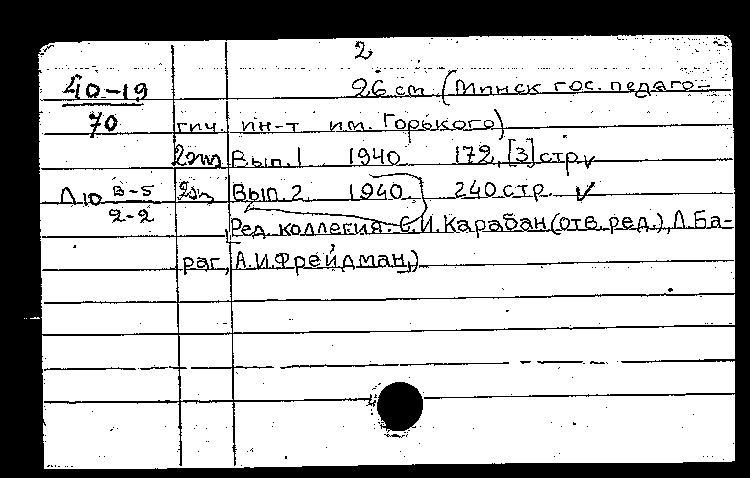 2
40-19 26 см (Минск гос. педаго=
70 гич. ин-т им. Горького)
2эт Вып. 1 1940 172, [3] стр. ✓
Л10 В-5 2эт Вып. 2 1940 240 стр. ✓
2-2
Ред. коллегия: С.И. Карабан (отв. ред.), Л. Ба-
раг, А.И. Фрейдман,)